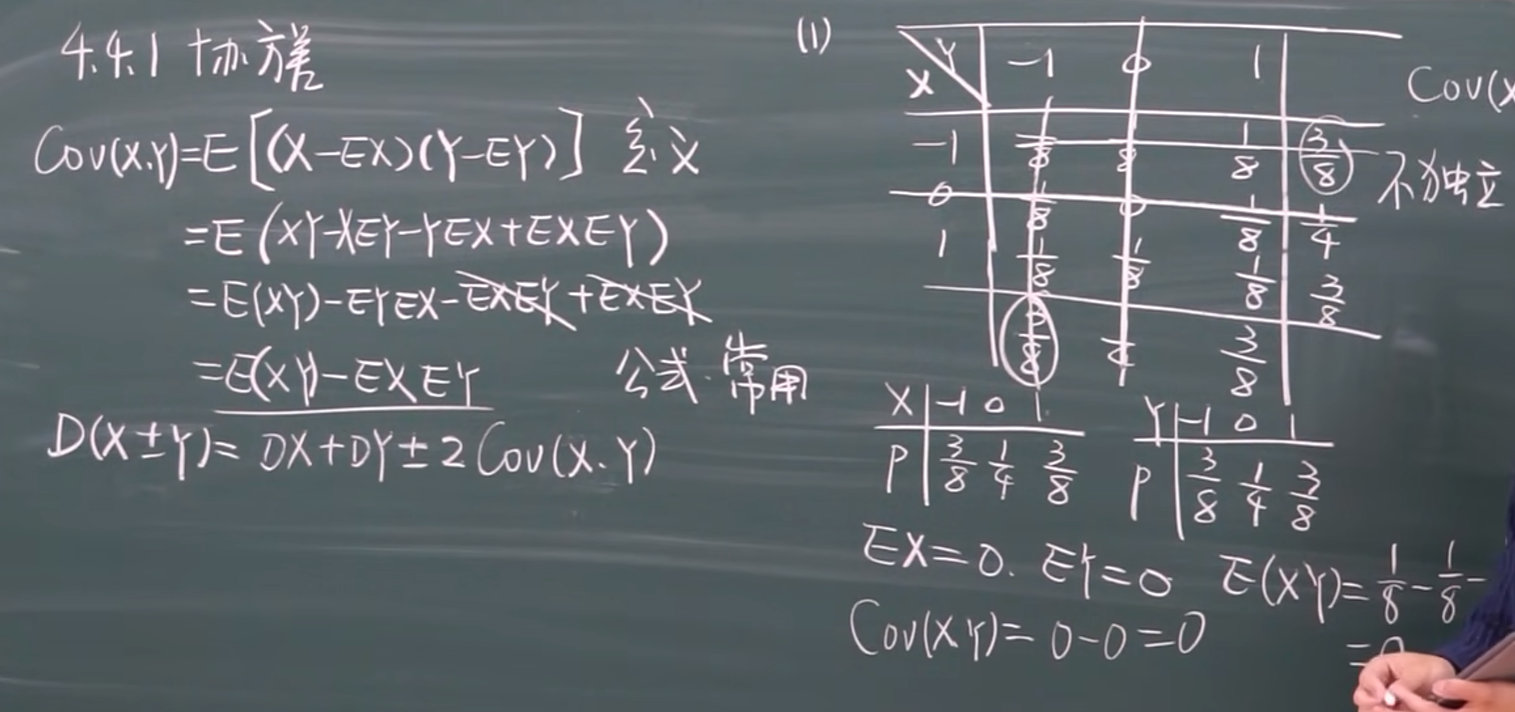 4.4.1 协方差
Cov(X.Y)=E[(X-EX)(Y-EY)] 定义
=E(XY-XEY-YEX+EXEY)
=E(XY)-EYEX-EXEY+EXEY
=E(XY)-EXEY 公式.常用
D(X±Y)= DX+DY±2Cov(X.Y)
(1)
Y -1 0 1
X
-1 1/8 1/8 1/8 3/8
0 1/8 0 1/8 1/4
1 1/8 1/8 1/8 3/8
3/8 1/4 3/8
Cov(X
不独立
X -1 0 1
P 3/8 1/4 3/8
Y -1 0 1
P 3/8 1/4 3/8
EX=0. EY=0 E(XY)=1/8-1/8-
=0
Cov(XY)=0-0=0